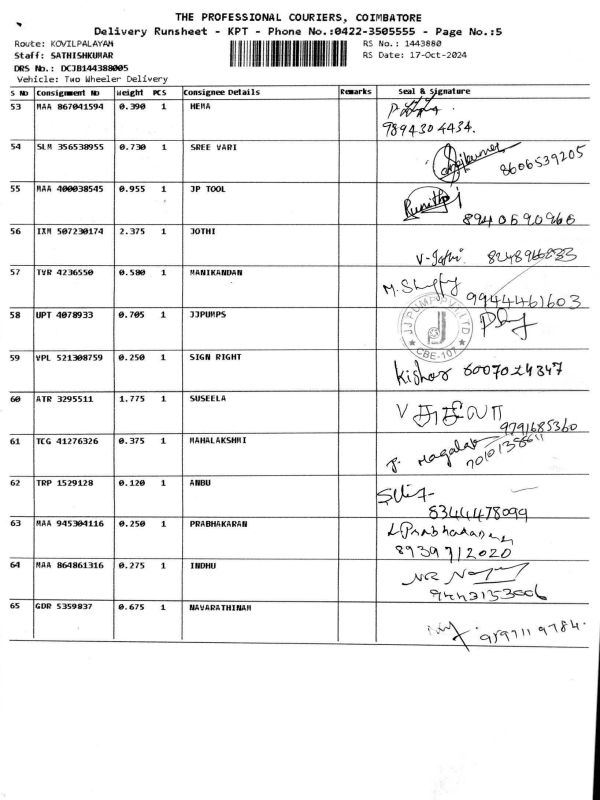 THE PROFESSIONAL COURIERS, COIMBATORE
Delivery Runsheet - KPT - Phone No.:0422-3505555 - Page No.:5
Route: KOVILPALAYAM RS No.: 1443880
Staff: SATHISHKUMAR RS Date: 17-Oct-2024
DRS No.: DCJB144388005
Vehicle: Two Wheeler Delivery
S No Consignment No Weight PCS Consignee Details Remarks Seal & Signature
53 MAA 867041594 0.390 1 HEMA
9894304434.
54 SLM 356538955 0.730 1 SREE VARI 8606539205
55 MAA 400038545 0.955 1 JP TOOL Runitha
8940690966
56 IXM 507230174 2.375 1 JOTHI
V-Jothi
57 TVR 4236550 0.580 1 MANIKANDAN
9944461603
58 UPT 4078933 0.705 1 JJPUMPS JJ PUMP PVT LTD
CBE-107
59 VPL 521308759 0.250 1 SIGN RIGHT
Kishor 6007024347
60 ATR 3295511 1.775 1 SUSEELA
V சுசிலா
9791685360
61 TCG 41276326 0.375 1 MAHALAKSHMI
62 TRP 1529128 0.120 1 ANBU
8344478099
63 MAA 945304116 0.250 1 PRABHAKARAN
8939712020
64 MAA 864861316 0.275 1 INDHU
9443153606
65 GDR 5359837 0.675 1 NAVARATHINAM
9597119784.